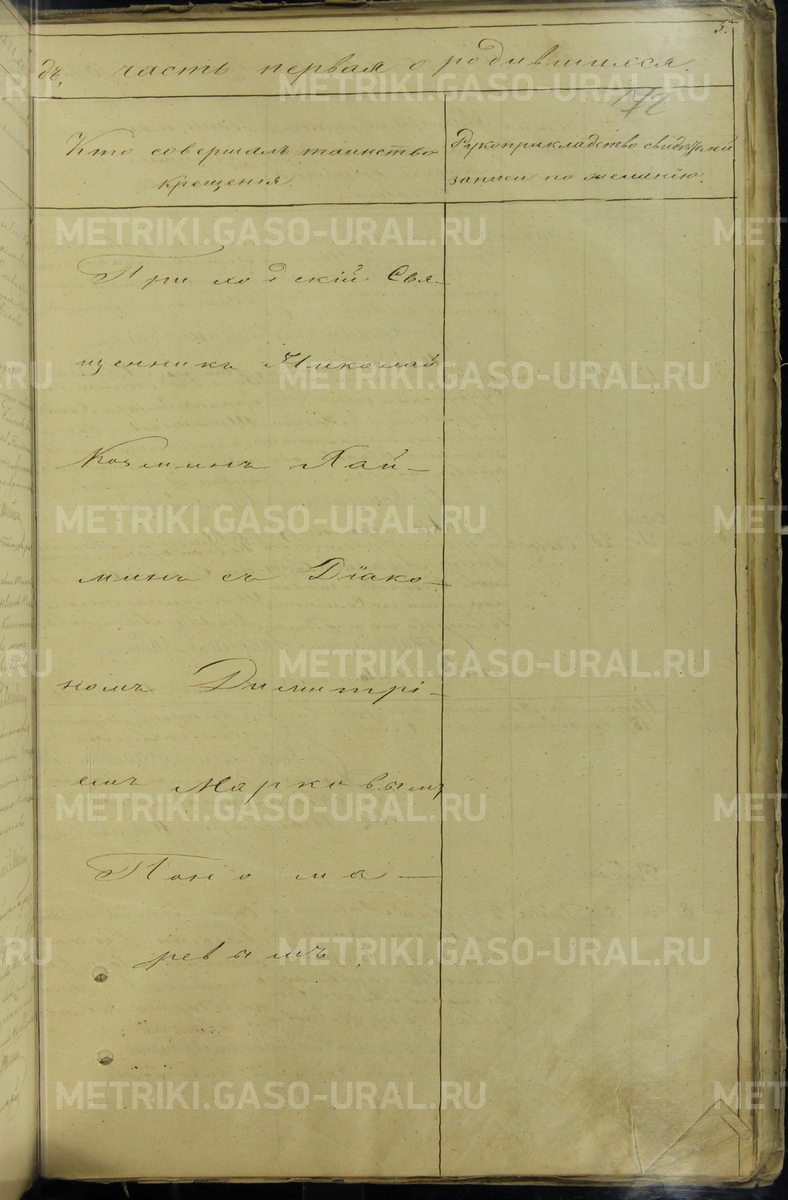 5.
дъ, часть первая о родившихся.
172
Кто совершалъ таинство
крещенія.
Рукоприкладство свидѣтелей
записи по желанію.
Приходскій Свя-
щенникъ Николай
Козминъ Хай-
минъ съ Діако-
номъ Димитрі-
емъ Марковымъ
Понома-
ревымъ
METRIKI.GASO-URAL.RU